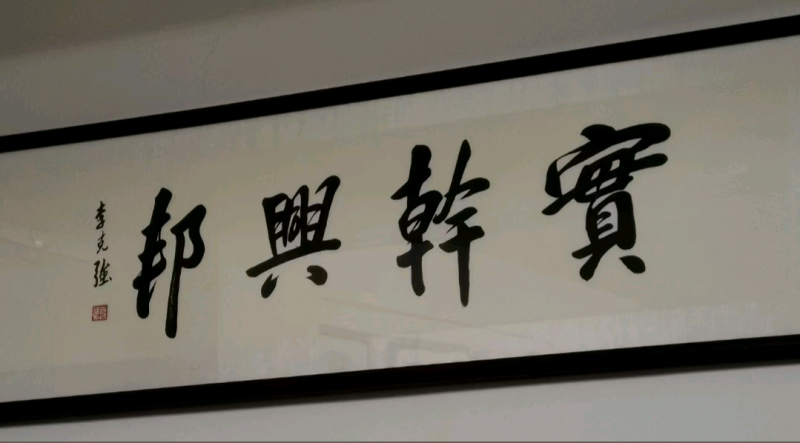 實幹興邦
李克強